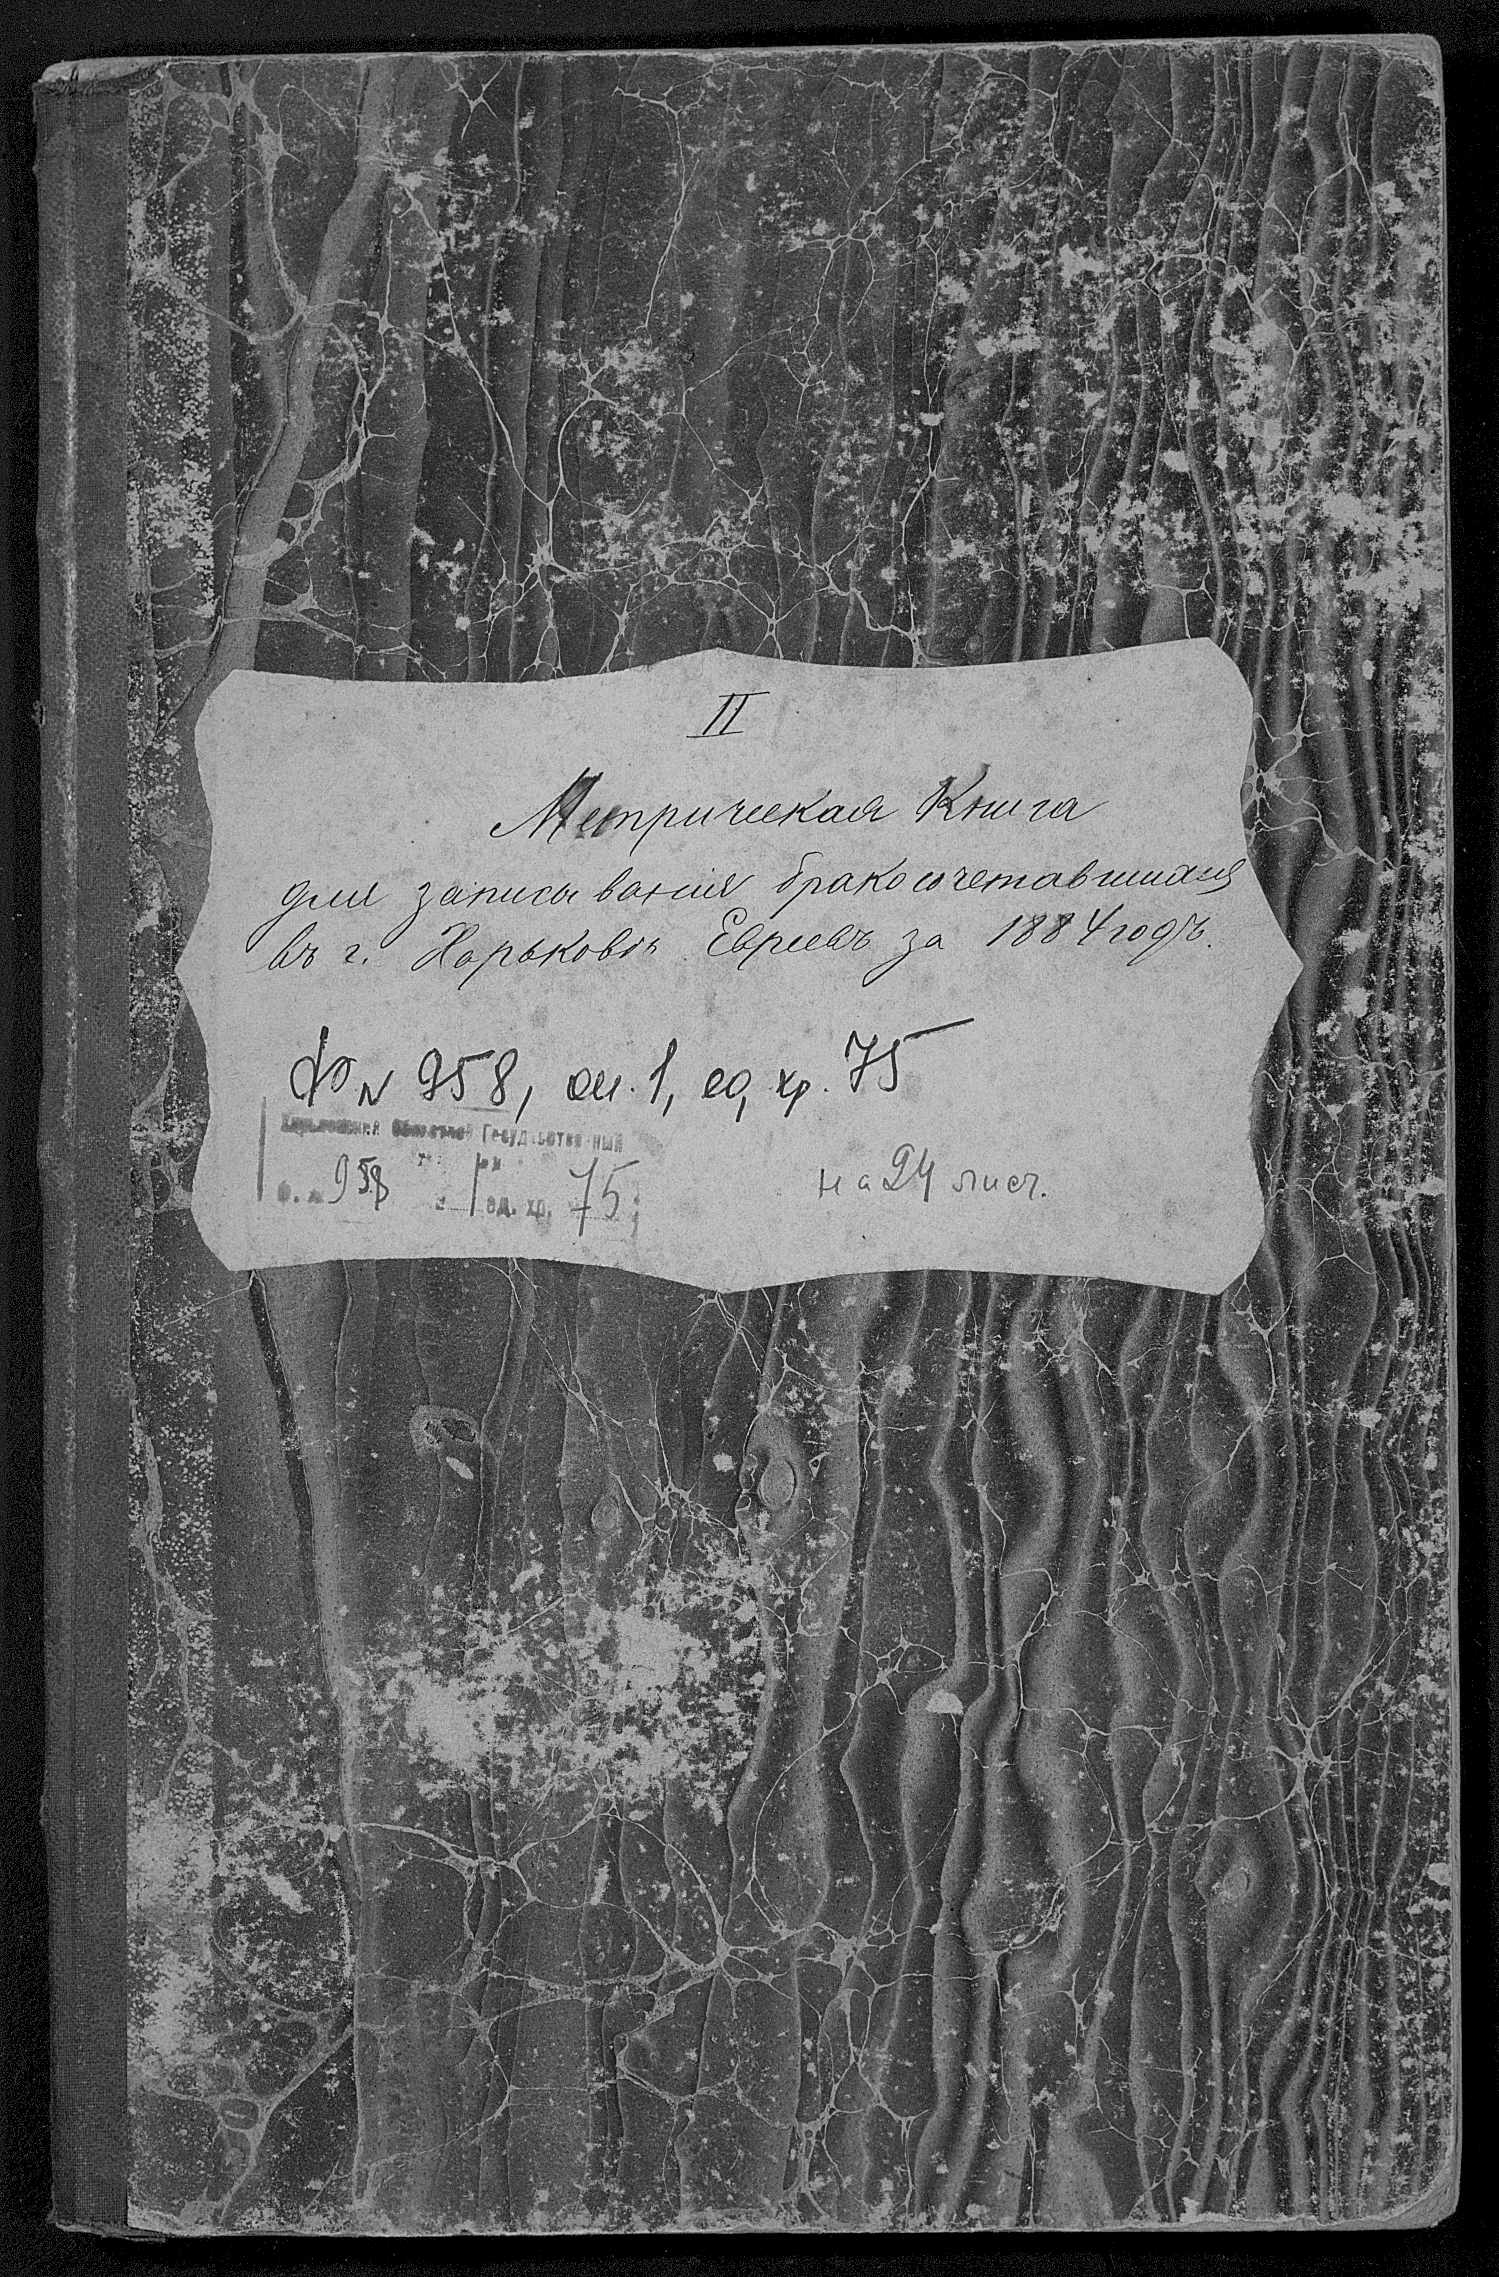 II
Метрическая Книга
для записыванія бракосочетавшихся
въ г. Харьковѣ Евреевъ за 1884 годъ.
Ф N 958, оп. 1, ед, хр. 75
Харьковский Областной Государственный
Ф. № 958 1 ед. хр. 75
на 24 лист.